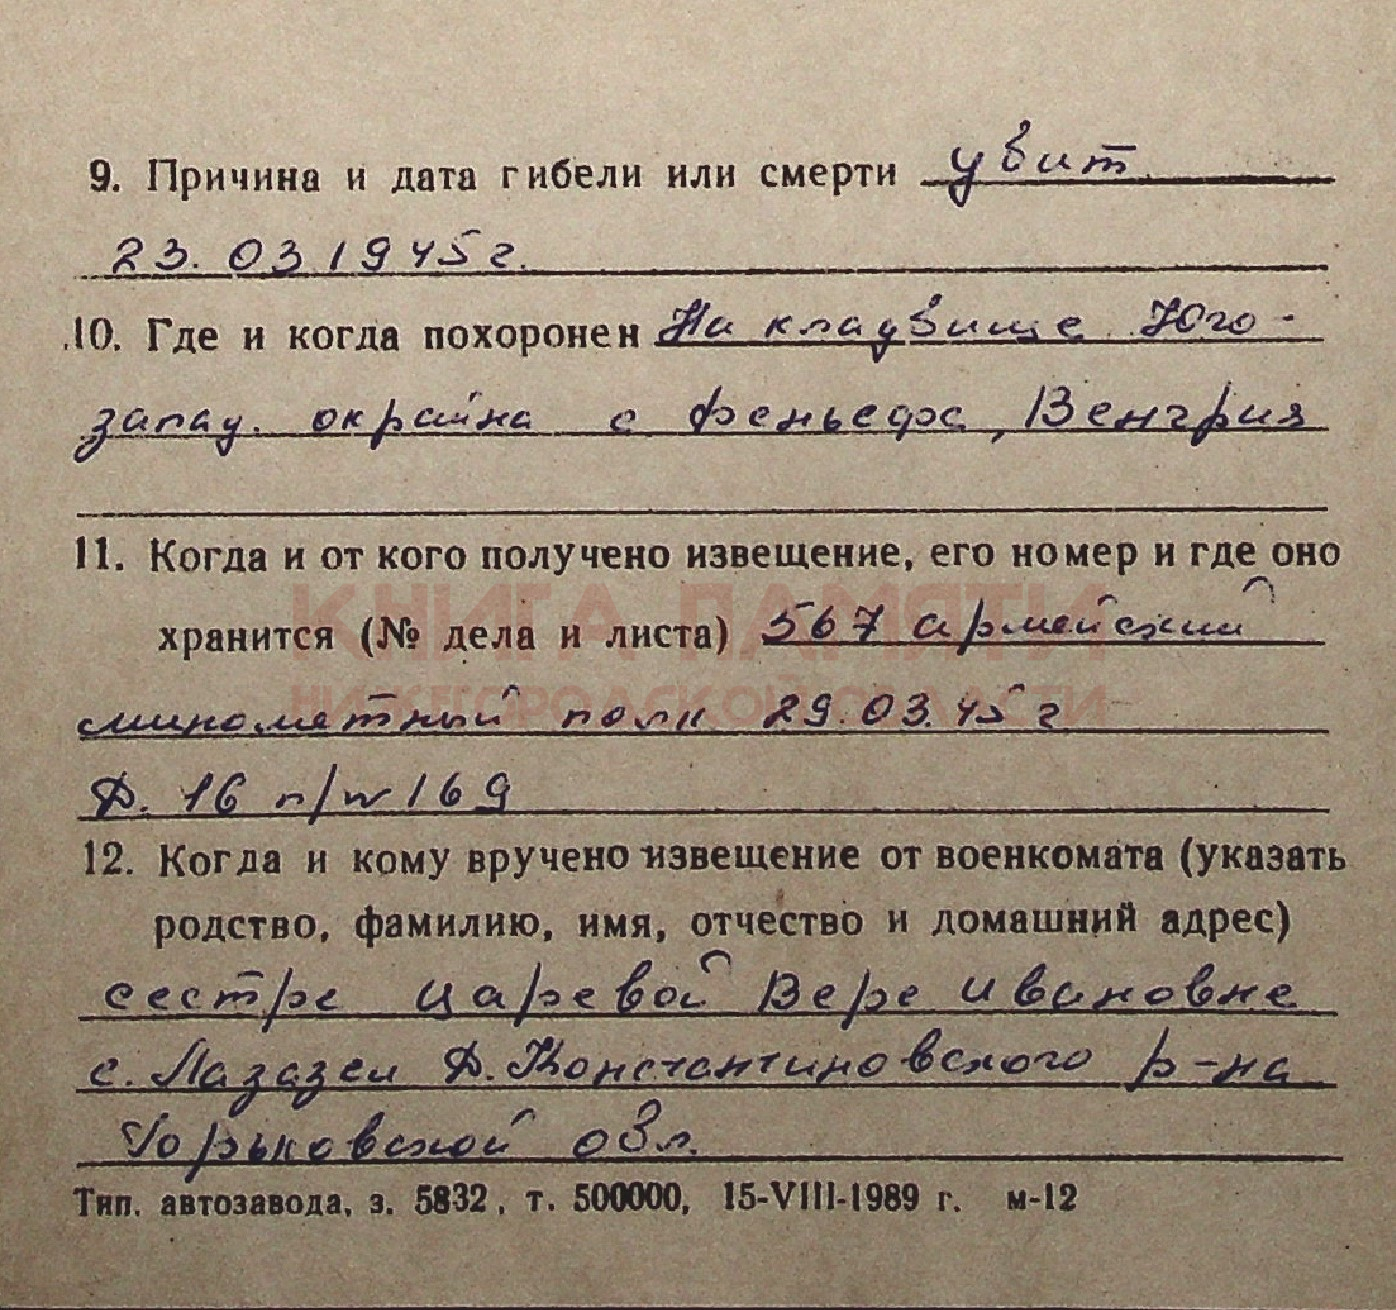 9. Причина и дата гибели или смерти убит
23.03 1945 г.
10. Где и когда похоронен На кладбище Юго-
запад. окраина с Феньефа, Венгрия
11. Когда и от кого получено извещение, его номер и где оно
хранится (№ дела и листа) 567 армейский
КНИГА ПАМЯТИ
минометный полк 29.03.45 г
НИЖЕГОРОДСКОЙ ОБЛАСТИ
Д. 16 п/№ 169
12. Когда и кому вручено извещение от военкомата (указать
родство, фамилию, имя, отчество и домашний адрес)
сестре Царевой Вере Ивановне
с. Д. Константиновского р-на
Горьковской обл.
Тип. автозавода, з. 5832, т. 500000, 15-VIII-1989 г. м-12